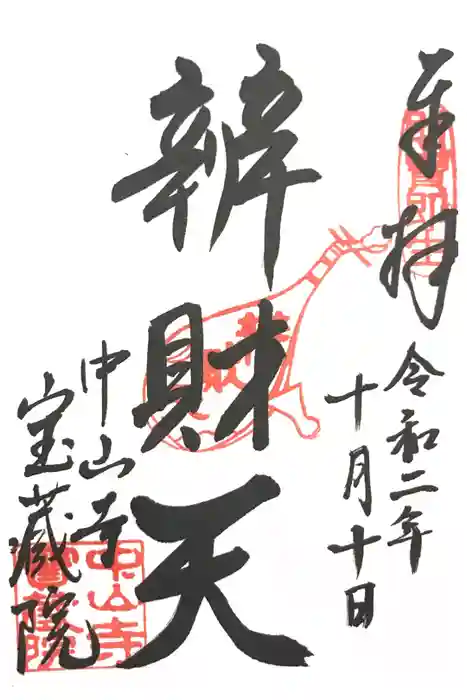 奉拝
令和二年
十月十日
辨財天
中山寺
宝蔵院
中山寺